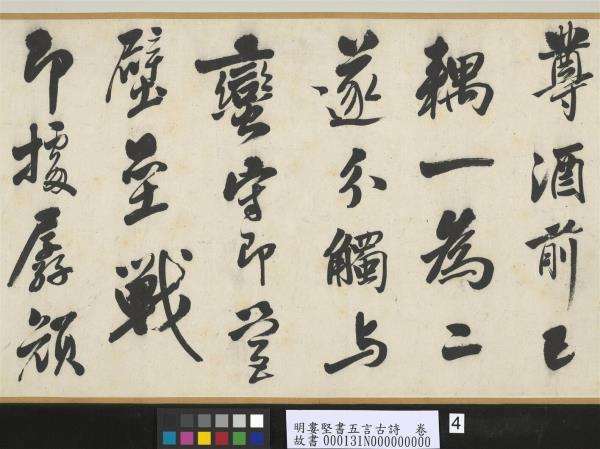 尊酒前已
耦一為二
遂分觸与
蠻守即營
壁壘戰
即據孱顏
明婁堅書五言古詩　卷
故書 000131N000000000
4